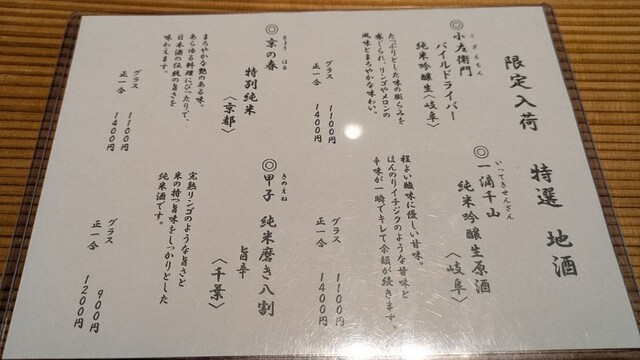 限定入荷 特選 地酒
こざえもん
◎小左衛門
パイルドライバー
純米吟醸生〈岐阜〉
たっぷりとした味の膨らみを
感じられ、リンゴやメロンの
風味とまろやかな味わい。
グラス 1100円
正一合 1400円
いってきせんざん
◎一滴千山
純米吟醸生原酒
〈岐阜〉
程よい酸味に優しい甘味。
ほんのりイチジクのような甘味と
辛味が一瞬でキレて余韻が続きます。
グラス 1100円
正一合 1400円
きょう はる
◎京の春
特別純米
〈京都〉
まろやかな艶のある味。
あらゆる料理にぴったりで、
日本酒の伝統の旨さを
味わえます。
グラス 1100円
正一合 1400円
きのえね
◎甲子 純米磨き八割
旨辛
〈千葉〉
完熟リンゴのような旨さと
米の持つ旨味をしっかりとした
純米酒です。
グラス 900円
正一合 1200円